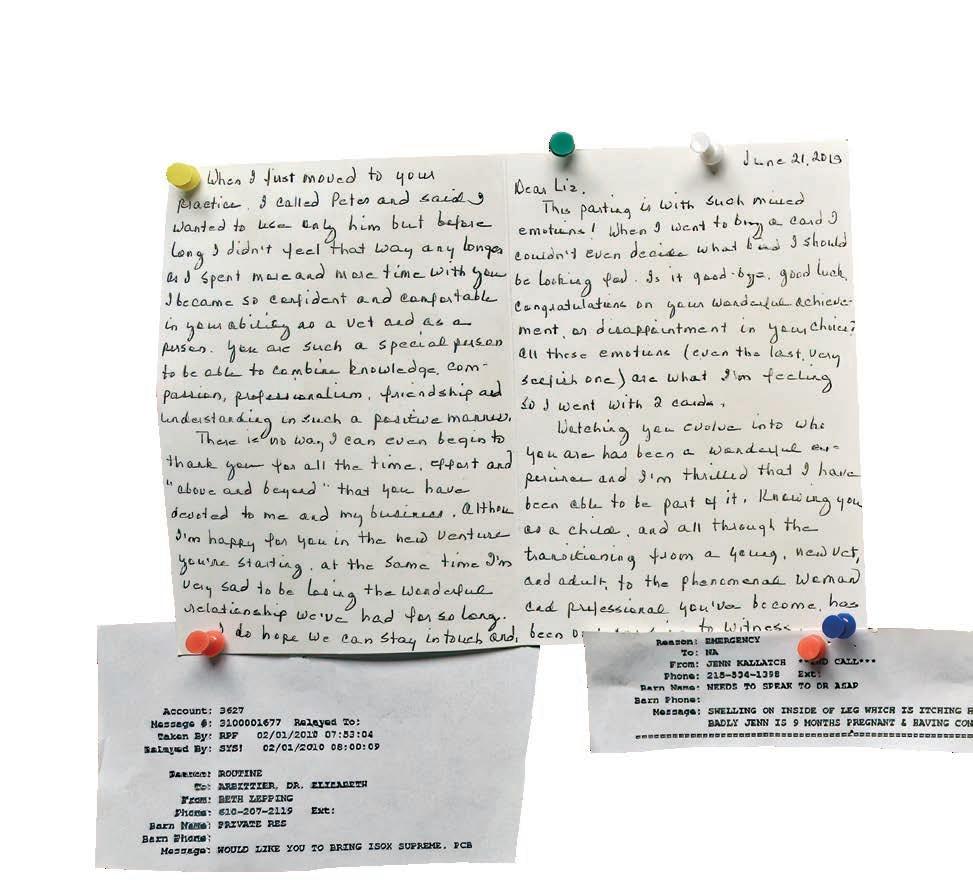 When I first moved to your
practice, I called Peter and said I
wanted to use only him but before
long I didn't feel that way any longer
as I spent more and more time with you
I became so confident and comfortable
in your ability as a vet and as a
person. You are such a special person
to be able to combine knowledge, com-
passion, professionalism, friendship and
understanding in such a positive manner.
There is no way I can even begin to
thank you for all the time, effort and
"above and beyond" that you have
devoted to me and my business. Althou
I'm happy for you in the new venture
you're starting, at the same time I'm
very sad to be losing the wonderful
relationship we've had for so long.
I do hope we can stay in touch and,
June 21, 2013
Dear Liz,
This parting is with such mixed
emotions! When I went to buy a card I
couldn't even decide what kind I should
be looking for. Is it good-bye, good luck,
congratulations on your wonderful achieve-
ment, or disappointment in your choice?
All these emotions (even the last, very
selfish one) are what I'm feeling
so I went with 2 cards.
Watching you evolve into who
you are has been a wonderful ex-
perience and I'm thrilled that I have
been able to be part of it. Knowing you
as a child, and all through the
transitioning from a young, new vet,
and adult, to the phenomenal woman
and professional you've become, has
been to witness
Account: 3627
Message #: 3100001677 Relayed To:
Taken By: RPF 02/01/2010 07:53:04
Relayed By: SYS! 02/01/2010 08:00:09
Reason: ROUTINE
To: ARBITTIER, DR. ELIZABETH
From: BETH LEPPING
Phone: 610-207-2119 Ext:
Barn Name: PRIVATE RES
Barn Phone:
Message: WOULD LIKE YOU TO BRING ISOX SUPREME. PCB
Reason: EMERGENCY
To: NA
From: JENN KALLATCH CALL***
Phone: 215-534-1398 Ext:
Barn Name: NEEDS TO SPEAK TO DR ASAP
Barn Phone:
Message: SWELLING ON INSIDE OF LEG WHICH IS ITCHING H
BADLY JENN IS 9 MONTHS PREGNANT & HAVING CON